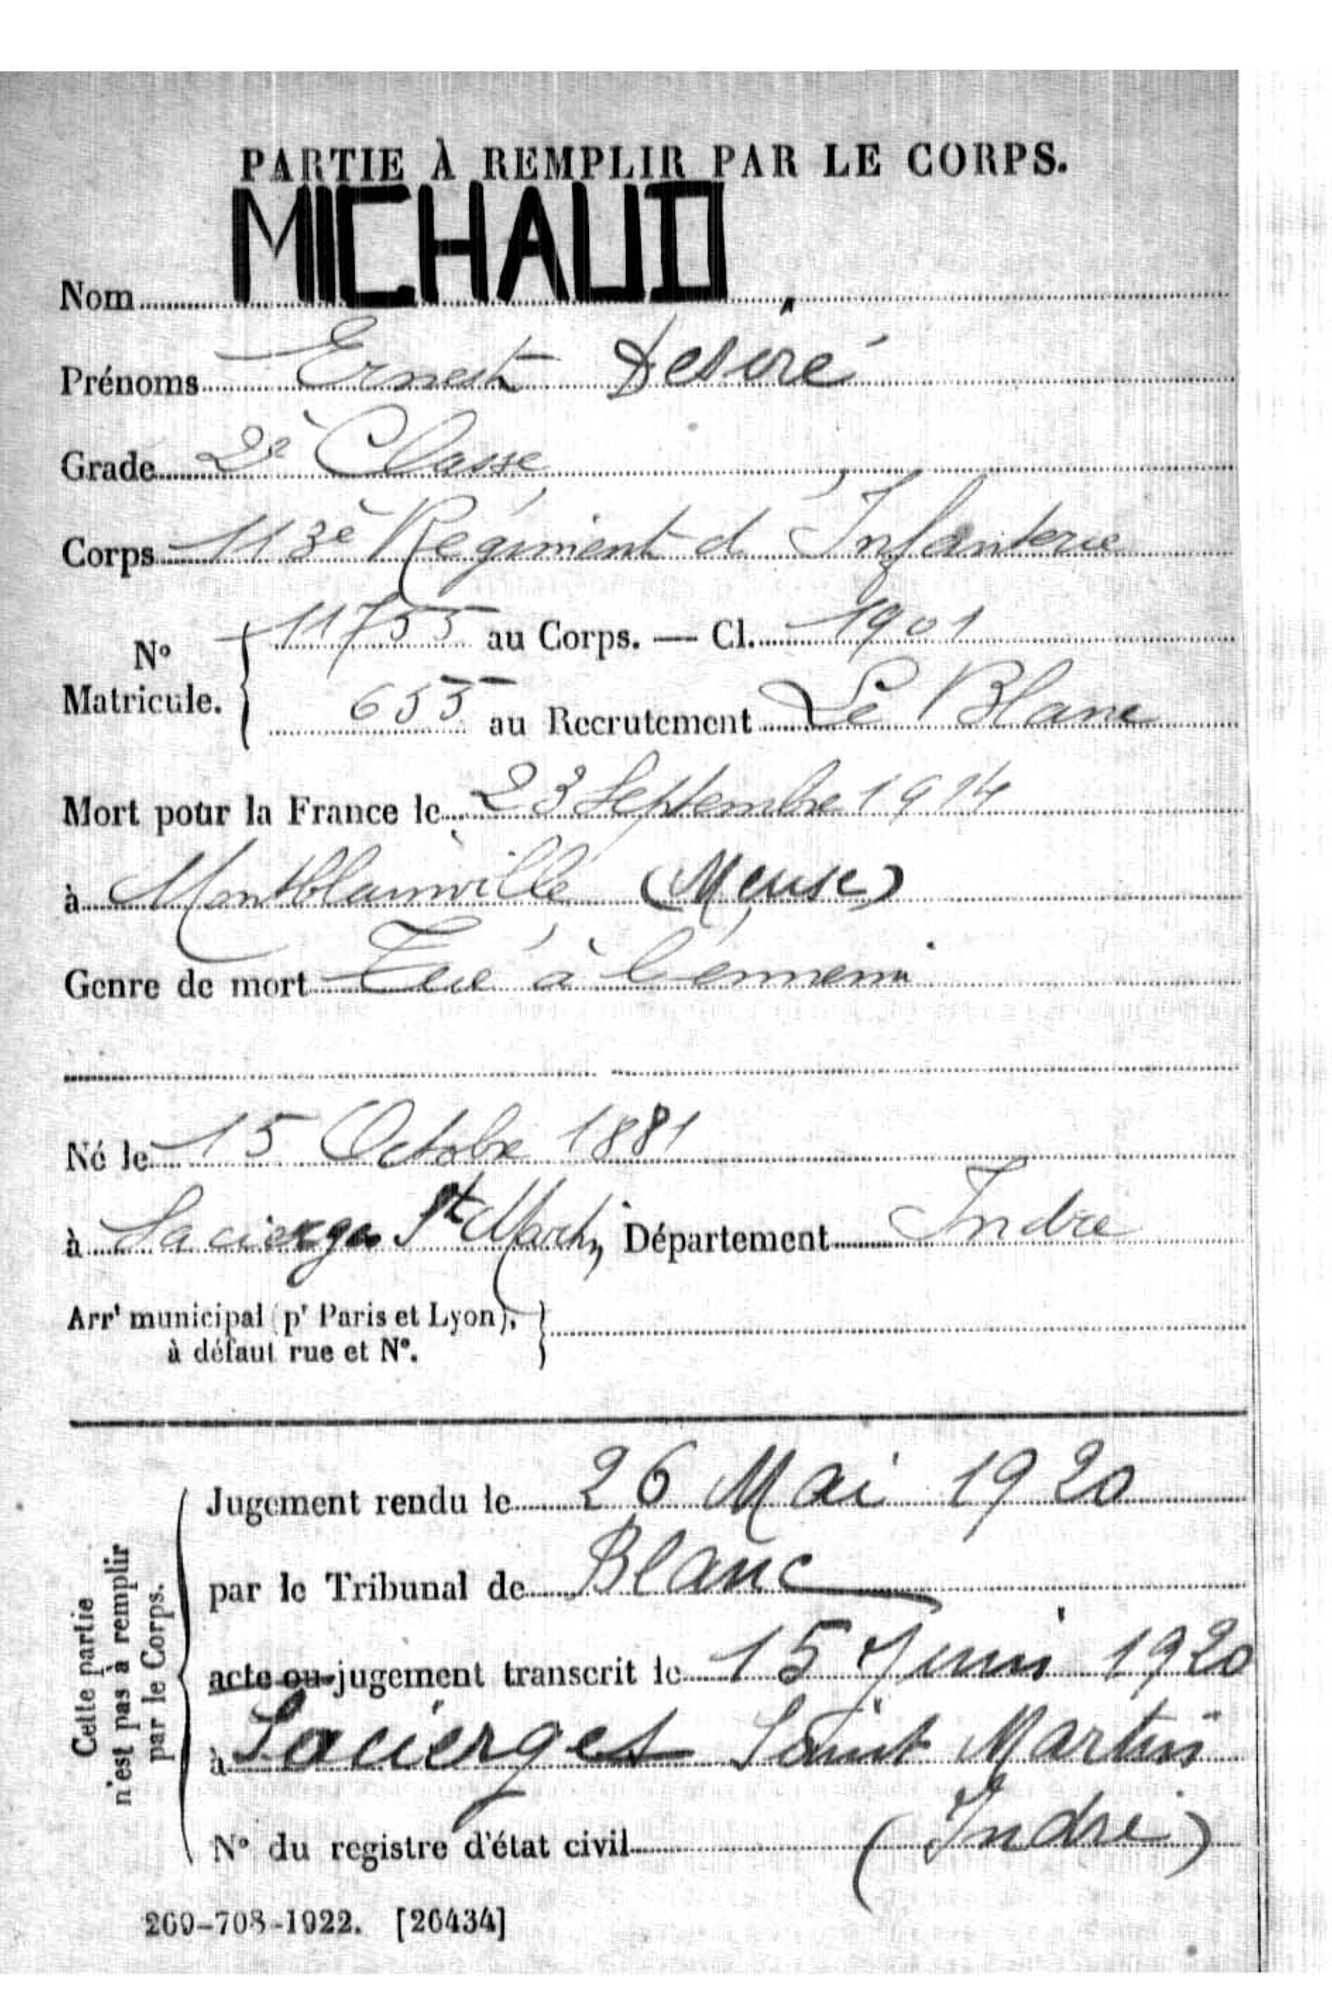 PARTIE À REMPLIR PAR LE CORPS.
Nom MICHAUD
Prénoms Ernest Désiré
Grade 2è Classe
Corps 113è Régiment d'Infanterie
N° Matricule. { 11755 au Corps. — Cl. 1901
655 au Recrutement Le Blanc
Mort pour la France le 23 Septembre 1914
à Montblainville (Meuse)
Genre de mort Tué à l'ennemi
Né le 15 Octobre 1881
à Lacierges St Martin Département Indre
Arrt municipal (pr Paris et Lyon), }
à défaut rue et N°.
Cette partie
n'est pas à remplir
par le Corps.
Jugement rendu le 26 Mai 1920
par le Tribunal de Blanc
acte ou jugement transcrit le 15 Juin 1920
à Lacierges Saint Martin
N° du registre d'état civil (Indre)
269-708-1922. [26434]